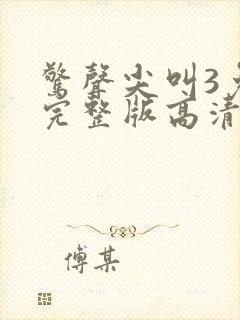 驚聲尖叫3免
完整版高清
傅某